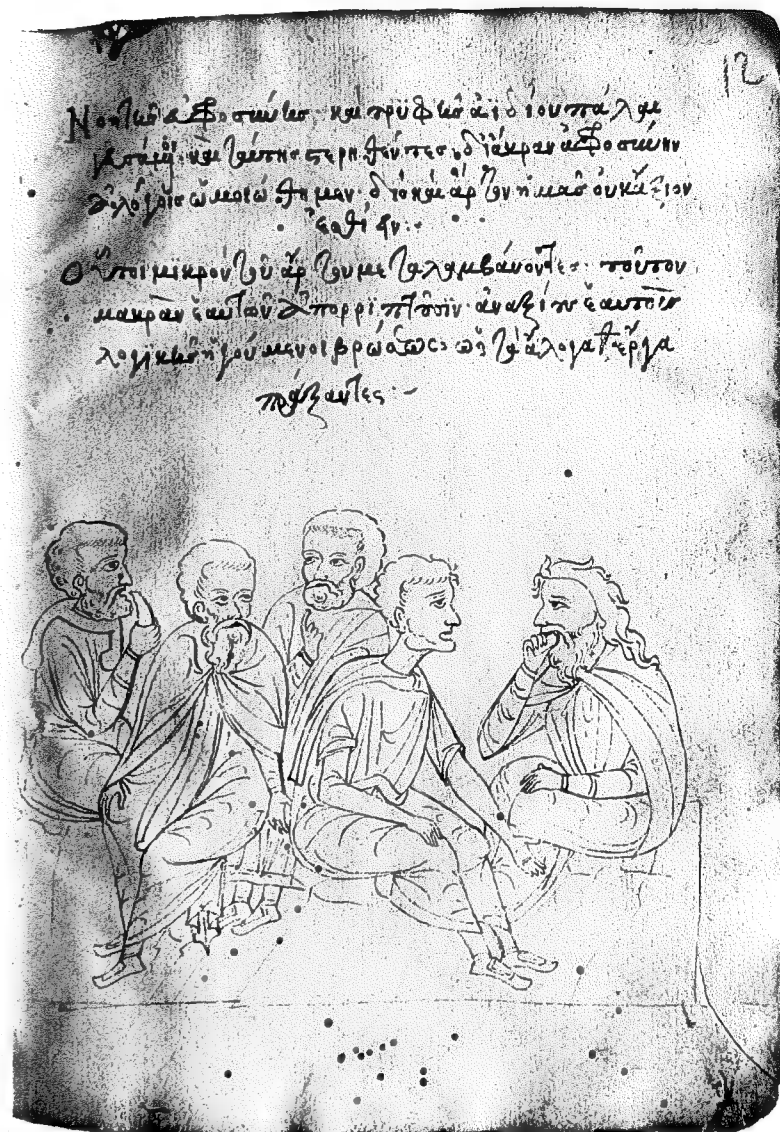 καὶ τρυφῆς ἀϊδίου πάλαι
καὶ ταύτης στερηθέντες δι' ἄκραν ἀφροσύνην
ἀλόγοις ὡμοιώθημεν· διὸ καὶ ἄρτον ἡμᾶς οὐκ ἄξιον
ἐσθίειν:
Οὗτοι μικρὸν τοῦ ἄρτου μεταλαμβάνοντες· τοῦτον
μακρὰν ἑαυτῶν ἀπορρίπτουσιν· ἀναξίους ἑαυτοὺς
λογικῆς ἡγούμενοι βρώσεως· ὡς τὰ ἔργα
πράξαντες:
12